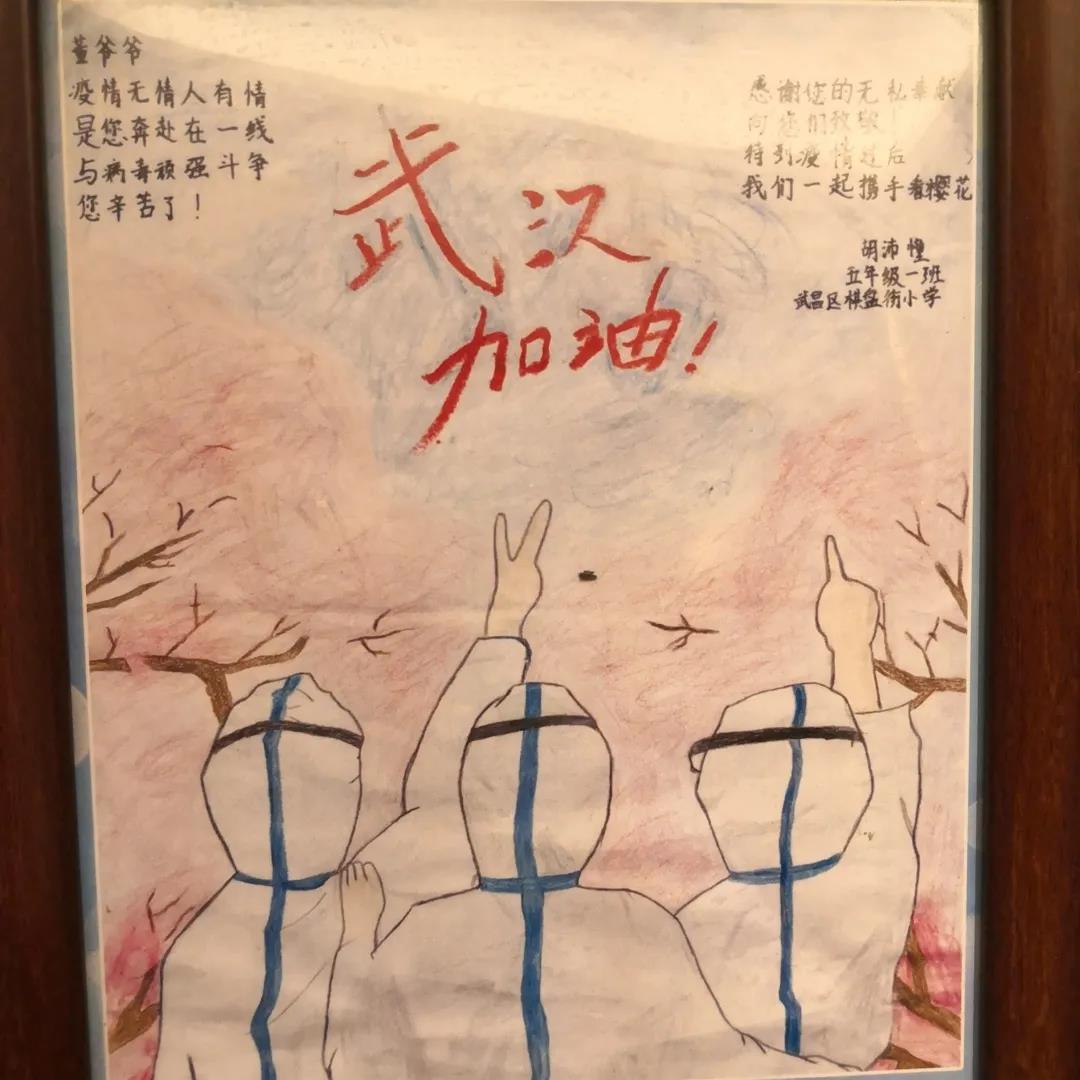 董爷爷
疫情无情人有情
是您奔赴在一线
与病毒顽强斗争
您辛苦了！
武汉
加油！
感谢您的无私奉献
向您们致敬
待到疫情过后
我们一起携手看樱花
胡沛惶
五年级一班
武昌区棋盘街小学